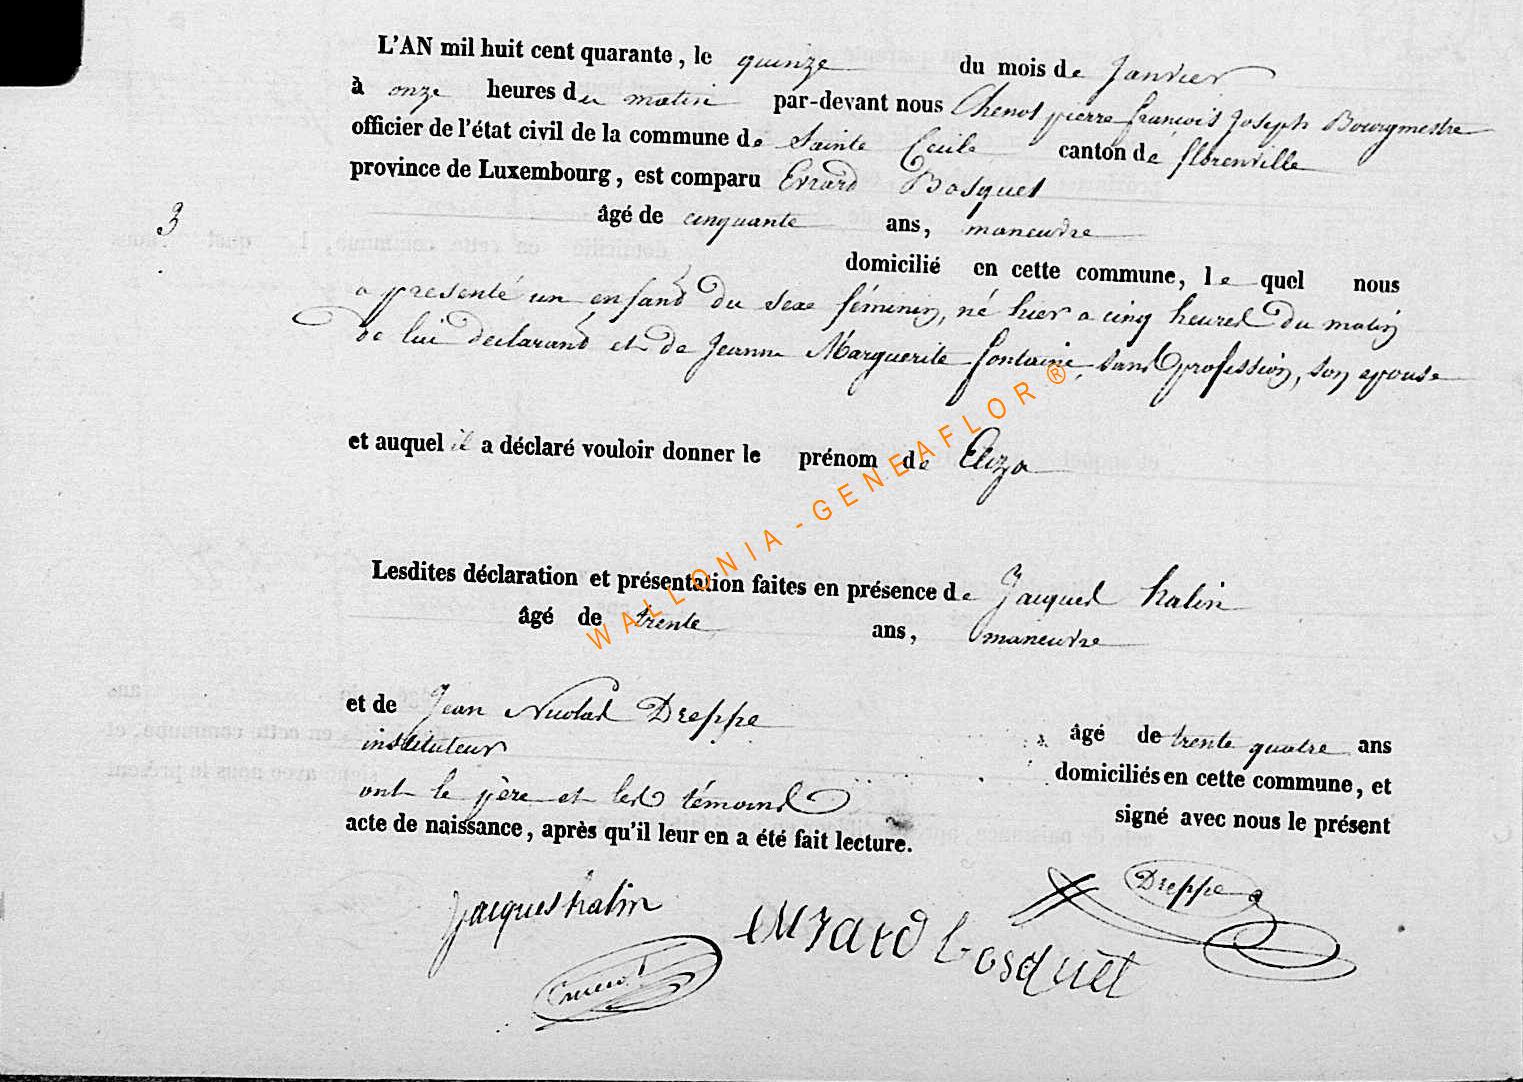 L'AN mil huit cent quarante, le quinze du mois de Janvier
à onze heures du matin par-devant nous Chenot pierre françois Joseph Bourgmestre
officier de l'état civil de la commune de Sainte Cecile canton de florenville
province de Luxembourg, est comparu Evrard Bosquet
3
âgé de cinquante ans, maneuvre
domicilié en cette commune, le quel nous
a présenté un enfand du sexe féminin, né hier a cinq heures du matin
de lui declarand et de Jeanne Marguerite fontaine, sans profession, son epouse
et auquel il a déclaré vouloir donner le prénom de Eliza
Lesdites déclaration et présentation faites en présence de Jacques halin
âgé de trente ans, maneuvre
et de Jean Nicolas Dreppe
âgé de trente quatre ans
instituteur domiciliés en cette commune, et
ont le père et les témoins signé avec nous le présent
acte de naissance, après qu'il leur en a été fait lecture.
Dreppe
jacques halin
evrard bosquet
WALLONIA - GENEAFLOR ®